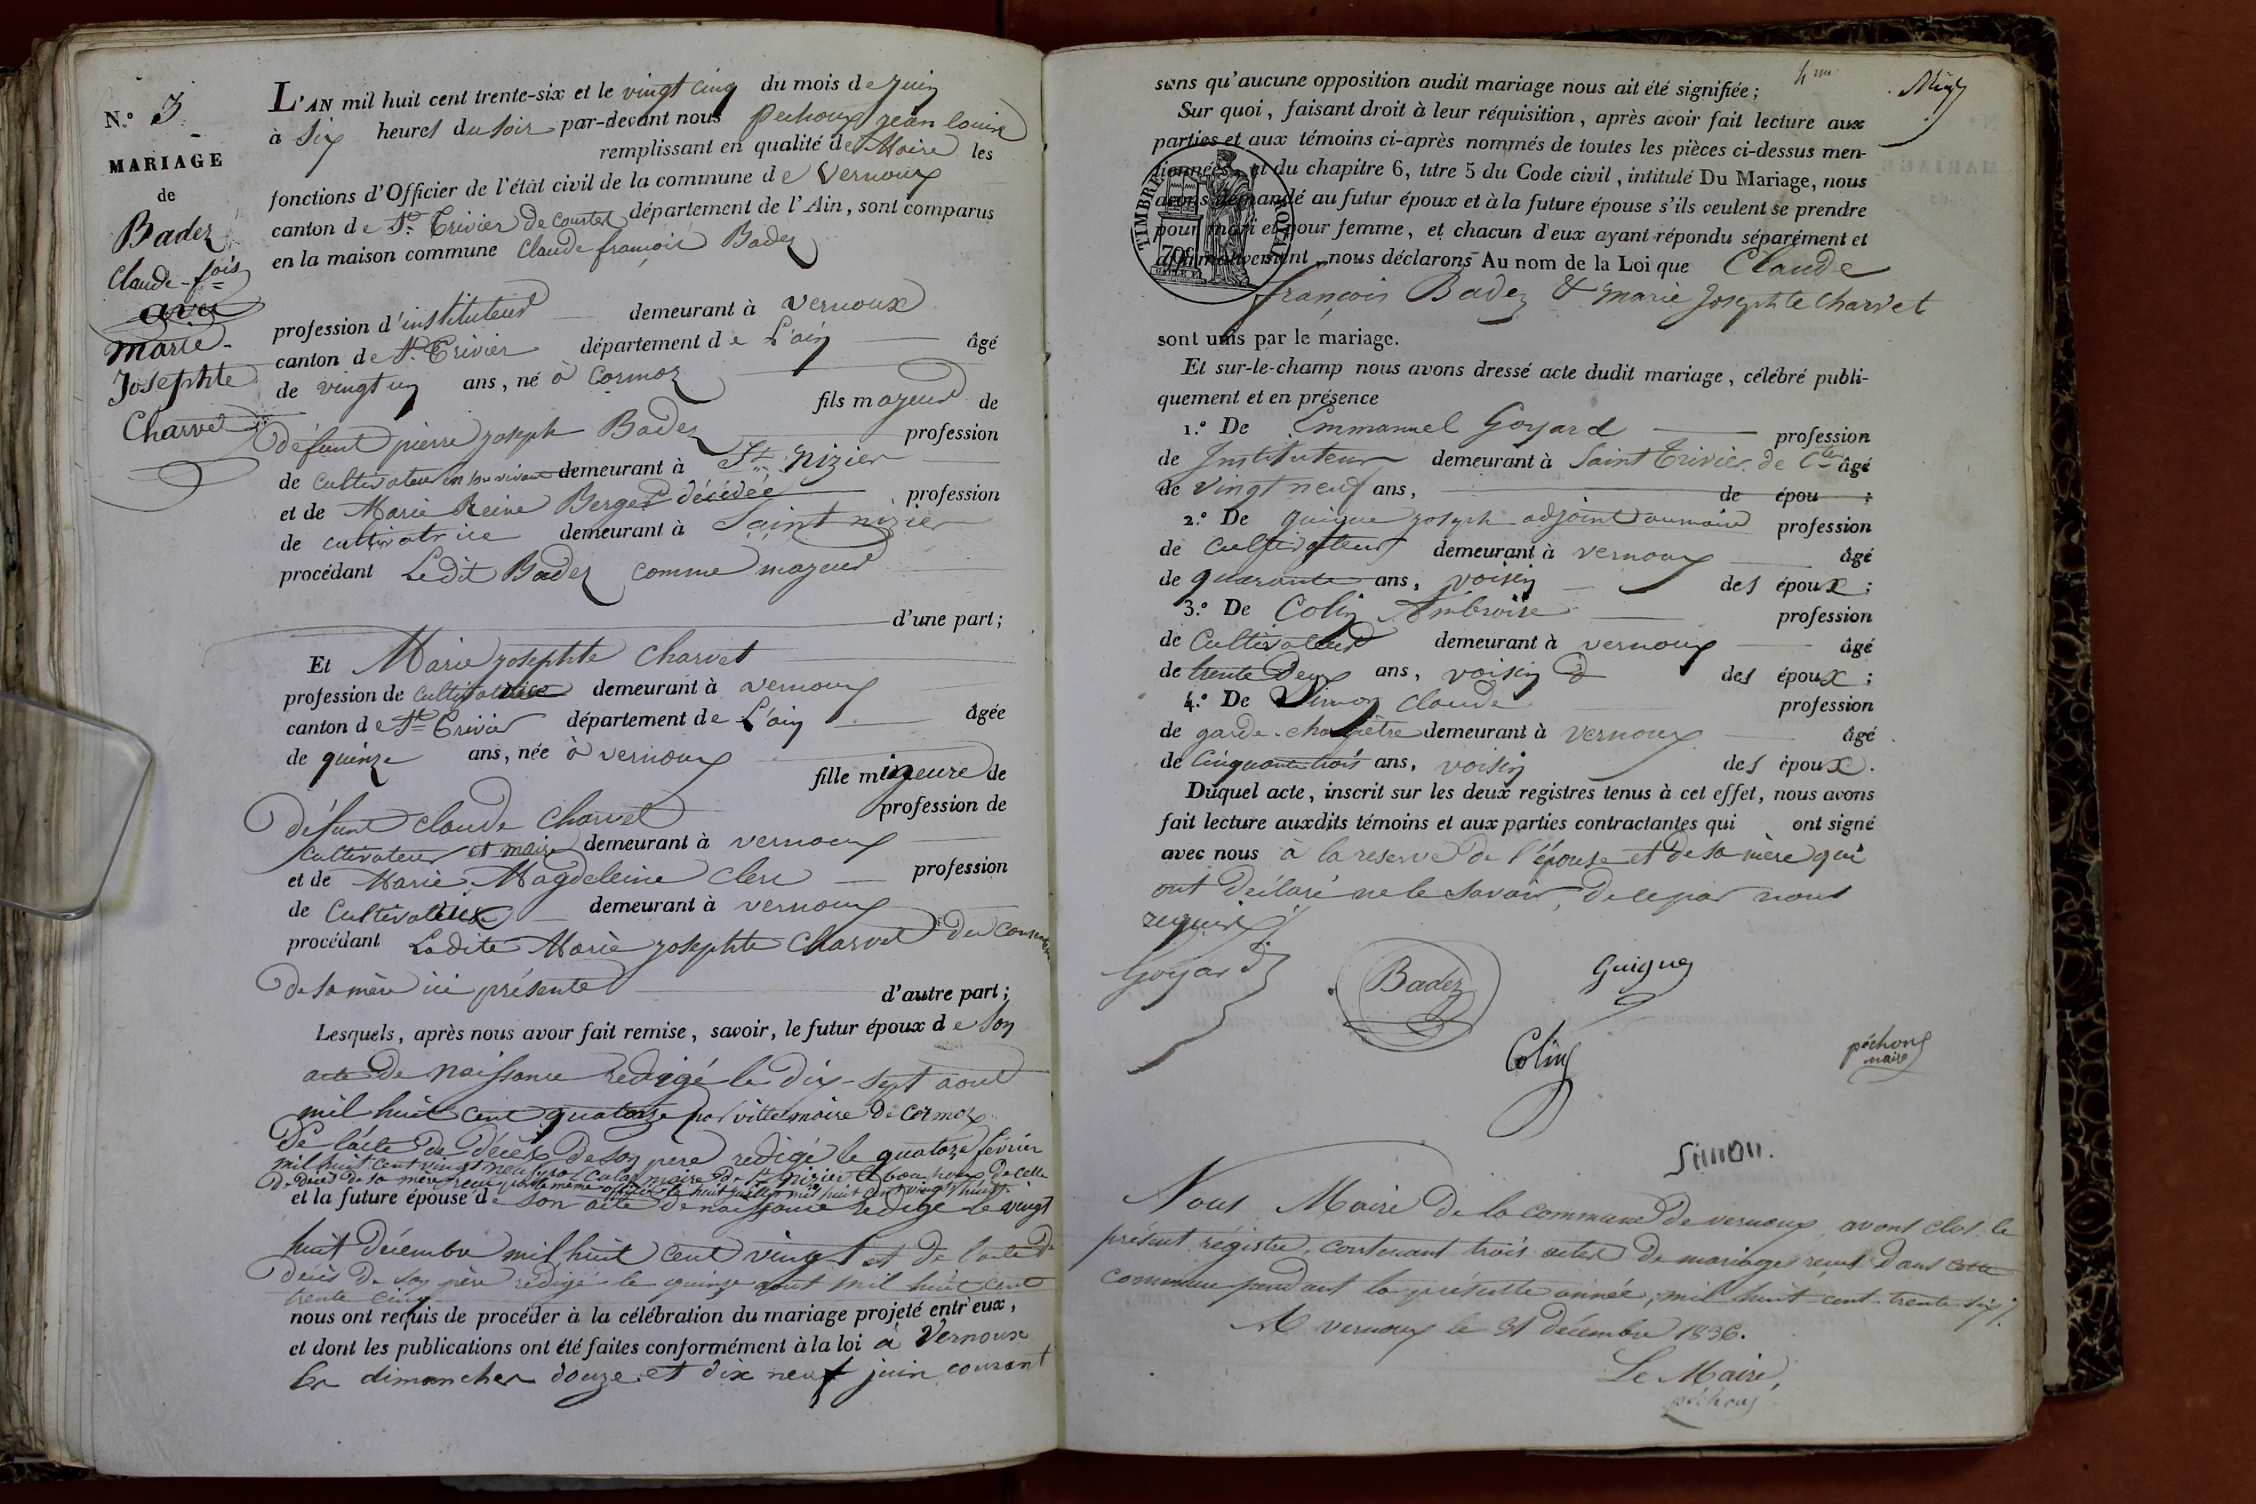 N.º 3
MARIAGE
de
Badez
Claude-fois
avec
Marie-
Josephte
Charvet
L'AN mil huit cent trente-six et le vingt cinq du mois de juin
à six heures du soir par-devant nous Pechoux jean louis
remplissant en qualité de Maire les
fonctions d'Officier de l'état civil de la commune de Vernoux
canton de St. Trivier de Courtes département de l'Ain, sont comparus
en la maison commune Claude françois Badez
profession d'instituteur demeurant à vernoux
canton de St. Trivier département de L'ain âgé
de vingt un ans, né à Cormoz
fils mayeur de
défunt pierre joseph Badez profession
de cultivateur en son vivant demeurant à St. Nizier
et de Marie Reine Berger décédée profession
de cultivatrice demeurant à Saint nizier
procédant Le dit Badez comme mayeur
d'une part;
Et Marie josephte Charvet
profession de cultivatrice demeurant à vernoux
canton de St. Trivier département de L'ain âgée
de quinze ans, née à vernoux
fille mineure de
défunt Claude Charvet profession de
cultivateur et maire demeurant à vernoux
et de Marie Magdeleine Clerc profession
de Cultivateur demeurant à vernoux
procédant Ladite Marie josephte Charvet du
de sa mère ici présente d'autre part;
Lesquels, après nous avoir fait remise, savoir, le futur époux de son
acte de naissance redigé le dix-sept aout
mil huit cent quatorze par maire de Cormoz
De l'acte de décès de son pere redigé le quatorze février
mil huit cent vingt neuf par maire de St. Nizier de celle
De décès de sa mère par le même le huit juillet mil huit cent vingt huit
et la future épouse de son acte de naissance redigé le vingt
huit décembre mil huit cent vingt et de l'acte de
décès de son père rédigé le quinze aout mil huit cent
trente cinq
nous ont requis de procéder à la célébration du mariage projeté entr'eux,
et dont les publications ont été faites conformément à la loi à Vernoux
les dimanches douze et dix neuf juin courant
sans qu'aucune opposition audit mariage nous ait été signifiée;
Sur quoi, faisant droit à leur réquisition, après avoir fait lecture aux
parties et aux témoins ci-après nommés de toutes les pièces ci-dessus men-
tionnées, et du chapitre 6, titre 5 du Code civil, intitulé Du Mariage, nous
avons demandé au futur époux et à la future épouse s'ils veulent se prendre
pour mari et pour femme, et chacun d'eux ayant répondu séparément et
affirmativement, nous déclarons Au nom de la Loi que Claude
françois Badez & marie Josephte Charvet
TIMBRE ROYAL
sont unis par le mariage.
Et sur-le-champ nous avons dressé acte dudit mariage, célébré publi-
quement et en présence
1.º De Emmanuel Goyard profession
de Instituteur demeurant à Saint Trivier de Ctes âgé
de vingt neuf ans, de épou ;
2.º De guigue joseph adjoint au maire profession
de cultivateur demeurant à vernoux âgé
de quarante ans, voisin des époux ;
3.º De Colin Ambroise profession
de Cultivateur demeurant à vernoux âgé
de trente deux ans, voisin des époux ;
4.º De Simon Claude profession
de garde-champêtre demeurant à vernoux âgé
de Cinquante trois ans, voisin des époux.
Duquel acte, inscrit sur les deux registres tenus à cet effet, nous avons
fait lecture auxdits témoins et aux parties contractantes qui ont signé
avec nous à la reserve de l'épouse et de sa mère qui
ont déclaré ne le savoir, de ce par nous
requis
Goyard
Badez
Guigue
Colin
péchoux
maire
Simon.
Nous Maire de la commune de vernoux, avons clos le
présent régistre, contenant trois actes de mariage reçus dans cette
commune pendant la présente année, mil huit-cent-trente-six
A vernoux le 31 décembre 1836.
Le Maire,
péchoux